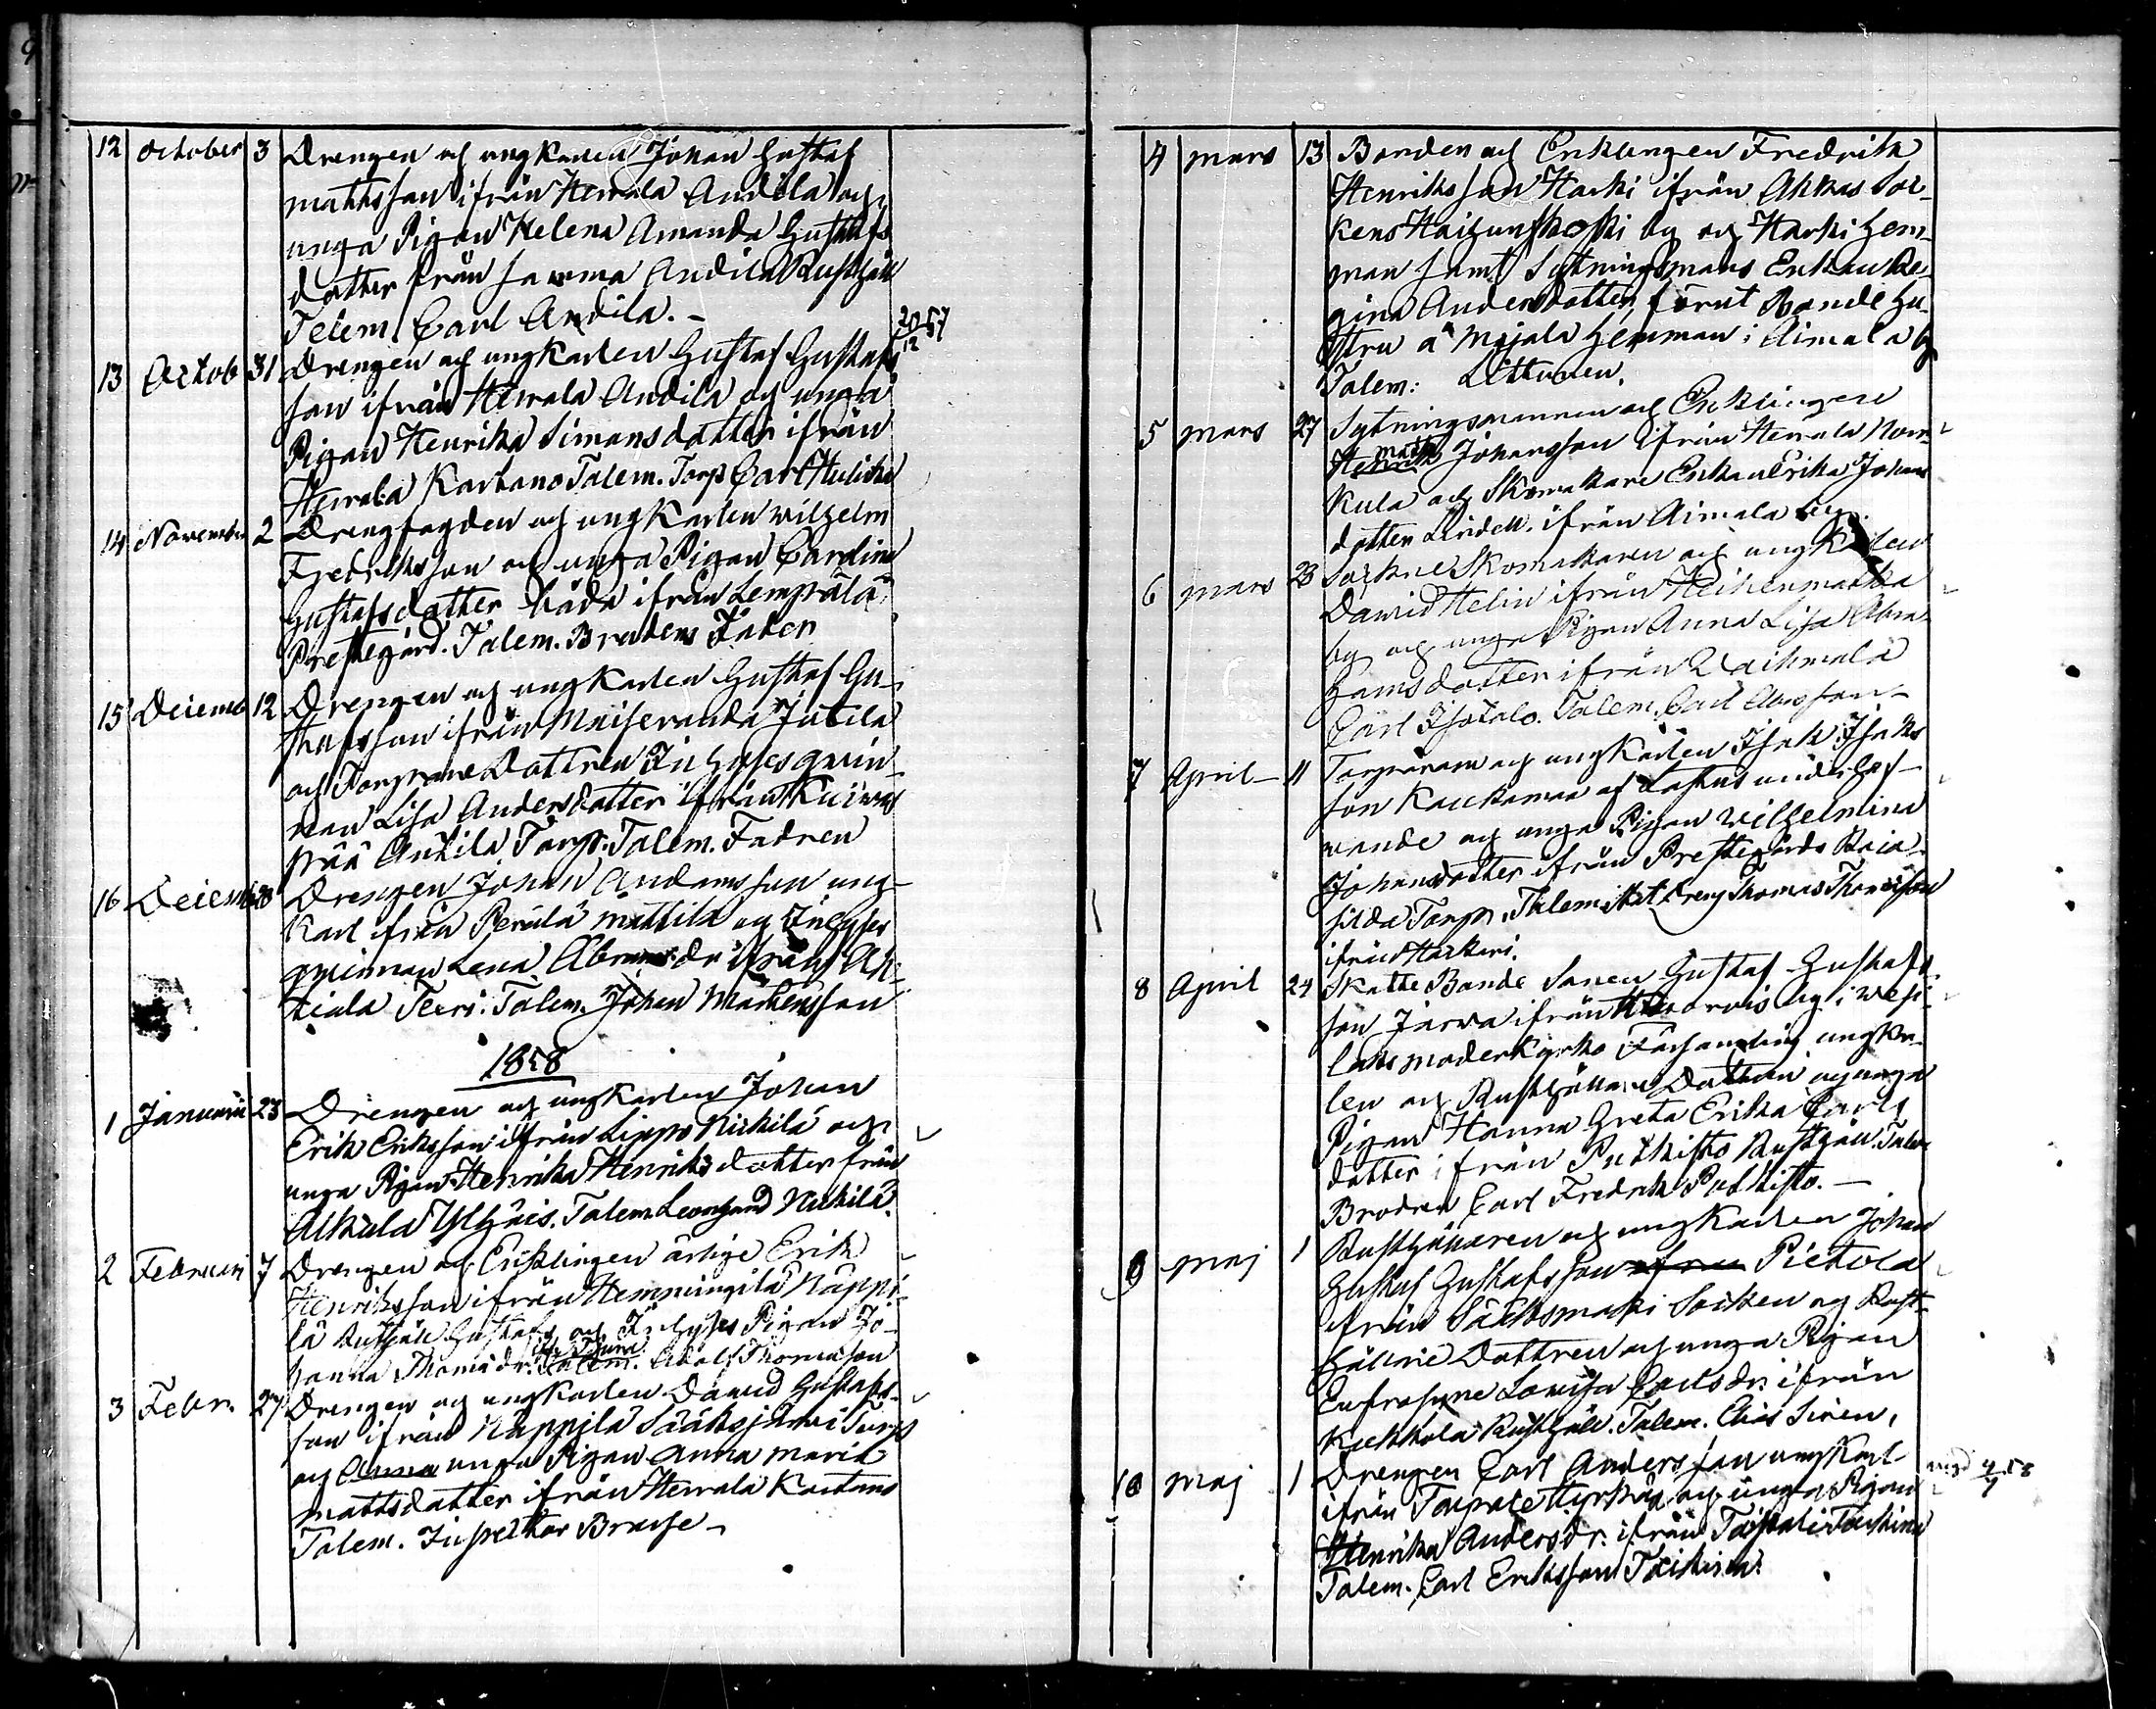 12 October 3 Drengen och ungkarlen Johan Gustaf
mattsson ifrån Herrala Andila och
unga Pigan Helena Amanda Gustafs
dotter från samma Andila Rusthåll
Talem. Carl Andila. –
13 Octob 31 Drengen och ungkarlen Gustaf Gustafs 20/12 57
son ifrån Herrala Andila och unga
Pigan Henrika Simonsdotter ifrån
Herrala Kartano Talem. Torp Carl
14 November 2 Drengfogden och ungkarlen Wilhelm
Fredriksson och unga Pigan Carolina
Gustafsdotter båda ifrån Lempäälä
Prestegård. Talem. Brudens Fader
15 Decemb 12 Drengen och ungkarlen Gustaf Gu-
stafsson ifrån Maisenranda Jutila
och Torpare Dottren Inhyses qwin-
nan Lisa Andersdotter ifrån Kuiwas
pää Anttila Torp. Talem. Fadren
16 Decemb 28 Drengen Johan Andersson ung-
karl ifrån Perälä Mattila och Inhyses
qwinnan Lena Abramsdr ifrån Ah-
tiala Teeri. Talem. Johan Mårtensson
1858
1 Januari 23 Drengen och ungkarlen Johan
Erik Eriksson ifrån Lippo Kickilä och
unga Pigan Henrika Henriksdotter från
Alkula Ylhäis. Talem. Kickilä.
2 Februari 7 Drengen och Enklingen ärlige Erik
Henriksson ifrån Hemmingilä Nappi-
lä Rusthåll Gustafs och Inhyses Pigan Jo-
hanna Thomædr. Talem. Adolf Thomasson
3 Febr. 27 Drengen och ungkarlen David Gustafs-
son ifrån Nappila Sääksjärwi Torp
och Anna unga Pigan Anna Maria
mattsdotter ifrån Herrala Kartano
Talem. Inspektor Bruse –
4 mars 13 Bonden och Enklingen Fredrik
Henriksson Harki ifrån Akkas Soc-
kens Haihunkoski by och Harki hem-
man samt Sytningsmans Enkan Re-
gina Andersdotter förut Bonde hu-
stru å Mäjälä hemman i Aimala by
Talem: Littunen.
5 mars 27 Sytningsmannen och Enklingen
Henrik matts Johansson ifrån Herrala Nom-
kula och Skomakare Enkan Erika Johans
dotter Lindell. ifrån Aimala by.
6 mars 28 Sockne Skomakaren och ungkarlen
Dawid Helin ifrån Heikenmatka
by och unga Pigan Anna Lisa Abra-
hamsdotter ifrån Waihmala
Carl Isotalo. Talem. Carl
7 April 11 Torparen och ungkarlen Isak Isaks
son Kaukamaa af Lastus underhaf-
wande och unga Pigan Wilhelmina
Johansdotter ifrån Prestegårds
Torp. Talem. Dreng Thomas Thomasson
ifrån Harkari.
8 April 24 Skatte Bonde Sonen Gustaf Gustafs
son Järwa ifrån by i Wesi-
laks moderkyrko Församling ungkar-
len och Rusthållare Dottren och unga
Pigan Hanna Greta Erika Carls
dotter ifrån Puthisto Rusthåll. Talem
Brodren Carl Fredrik Puthisto. –
9 maj 1 Rusthållaren och ungkarlen Johan
Gustaf Gustafsson ifrån Pietola
ifrån Sääksmäki Socken och Rust-
hållare Dottren och unga Pigan
Eufrosyne Lowisa Carlsdr. ifrån
Kuckkola Rusthåll. Talem. Elias Siren,
10 maj 1 Drengen Carl Andersson ungkarl
ifrån Taipale och unga Pigan
Henrika Andersdr. ifrån Taipale
Talem. Carl Eriksson
4/7 58